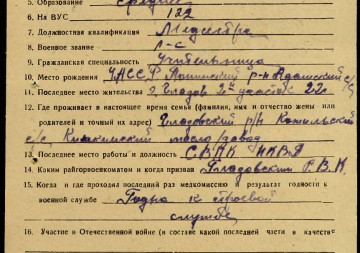 5. Образование среднее
6. На ВУС 122
7. Должностная квалификация Медсестра
8. Военное звание л-с
9. Гражданская специальность Учительница
10. Место рождения УАССР р-н с/с
11. Последнее место жительства г. Глазов 2й участок 22
12. Где проживает в настоящее время семья (фамилия, имя и отчество жены или
родителей и точный их адрес) Глазовский р/н
с/с маслозавод
13. Последнее место работы и должность НКВД
14. Каким райгорвоенкоматом и когда призван Глазовским Р.В.К.
15. Когда и где проходил последний раз медкомиссию и результат годности к
военной службе Годна к строевой
службе
16. Участие в Отечественной войне (в составе какой последней части и в качестве